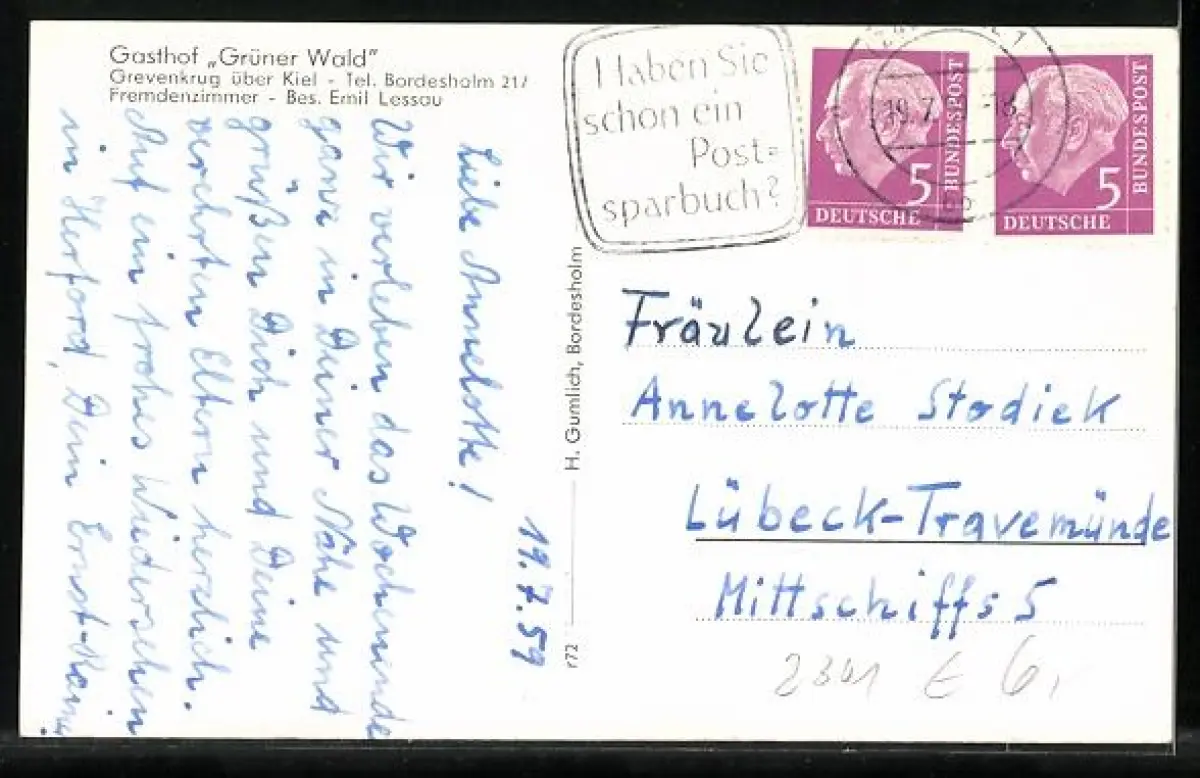 Gasthof „Grüner Wald"
Grevenkrug über Kiel - Tel. Bordesholm 217
Fremdenzimmer - Bes. Emil Lessau
19.7.59
Liebe Annelotte!
Wir verleben das Wochenende
ganz in Deiner Nähe und
grüßen Dich und Deine
verehrten Eltern herzlich.
Auf ein frohes Wiedersehen
in Herford, Dein Ernst-Rainer
H. Gumlich, Bordesholm
r72
Haben Sie
schon ein
Post=
sparbuch?
19.7. -18
5
DEUTSCHE
BUNDESPOST
5
DEUTSCHE
BUNDESPOST
Fräulein
Annelotte Stodiek
Lübeck-Travemünde
Mittschiffs 5
2341 E 6,